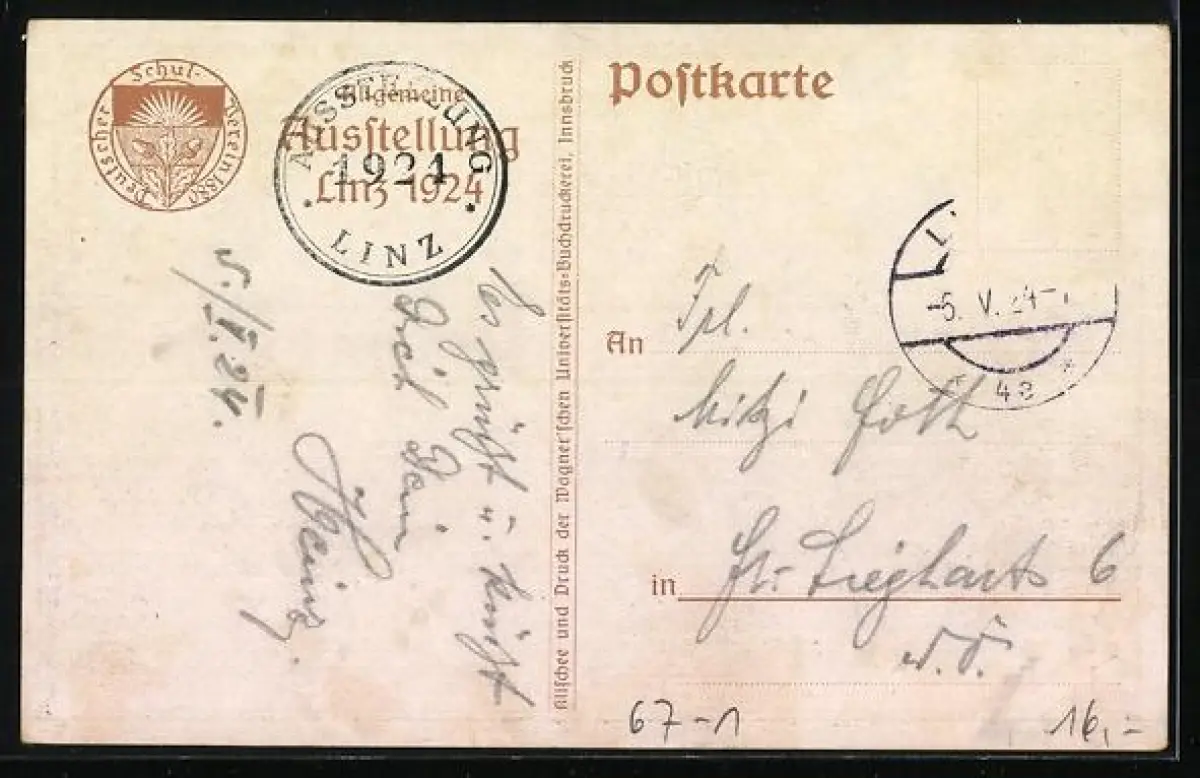 Deutscher Schul-Verein 1880
Allgemeine
Ausstellung
Linz 1924
AUSSTELLUNG
1924
LINZ
5./V.24.
Es grüßt u. küßt
Dich Dein
Heinz.
Klischee und Druck der Wagner'schen Universitäts-Buchdruckerei, Innsbruck
Postkarte
-5. V. 24
An
Mitzi
in Gr. Siegharts 6
N.Ö.
67-1
16,-